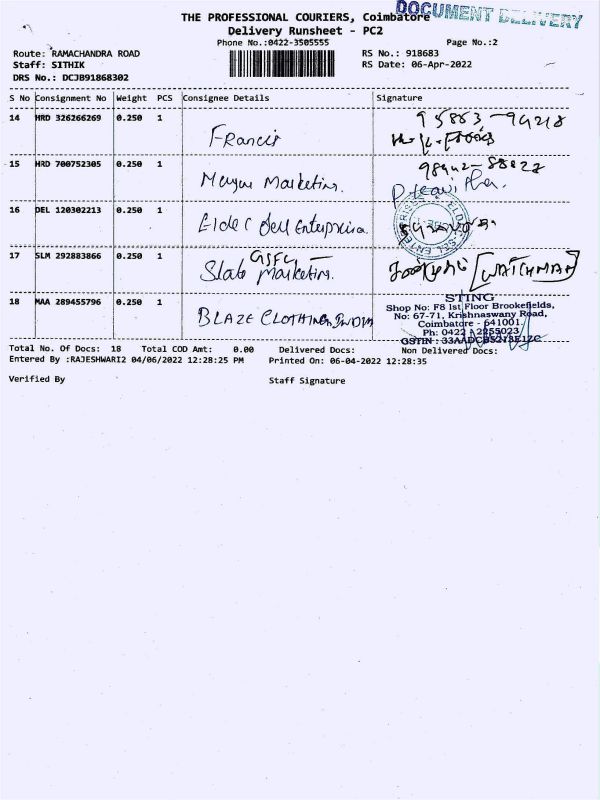 DOCUMENT DELIVERY
THE PROFESSIONAL COURIERS, Coimbatore
Delivery Runsheet - PC2
Phone No.:0422-3505555
Page No.:2
Route: RAMACHANDRA ROAD
RS No.: 918683
Staff: SITHIK
RS Date: 06-Apr-2022
DRS No.: DCJB91868302
S No Consignment No Weight PCS Consignee Details Signature
14 HRD 326266269 0.250 1 Francis
15 HRD 700752305 0.250 1 Marketing.
16 DEL 120302213 0.250 1 Enterprise.
17 SLM 292883866 0.250 1 Marketing. [WATCHMAN]
18 MAA 289455796 0.250 1 BLAZE CLOTHING INDIA
STING
Shop No: F8 1st Floor Brookefields,
No: 67-71, Krishnaswany Road,
Coimbatore - 641001.
Ph: 0422 2255023
Total No. Of Docs: 18 Total COD Amt: 0.00 Delivered Docs: Non Delivered Docs:
Entered By :RAJESHWARI2 04/06/2022 12:28:25 PM Printed On: 06-04-2022 12:28:35
Verified By Staff Signature